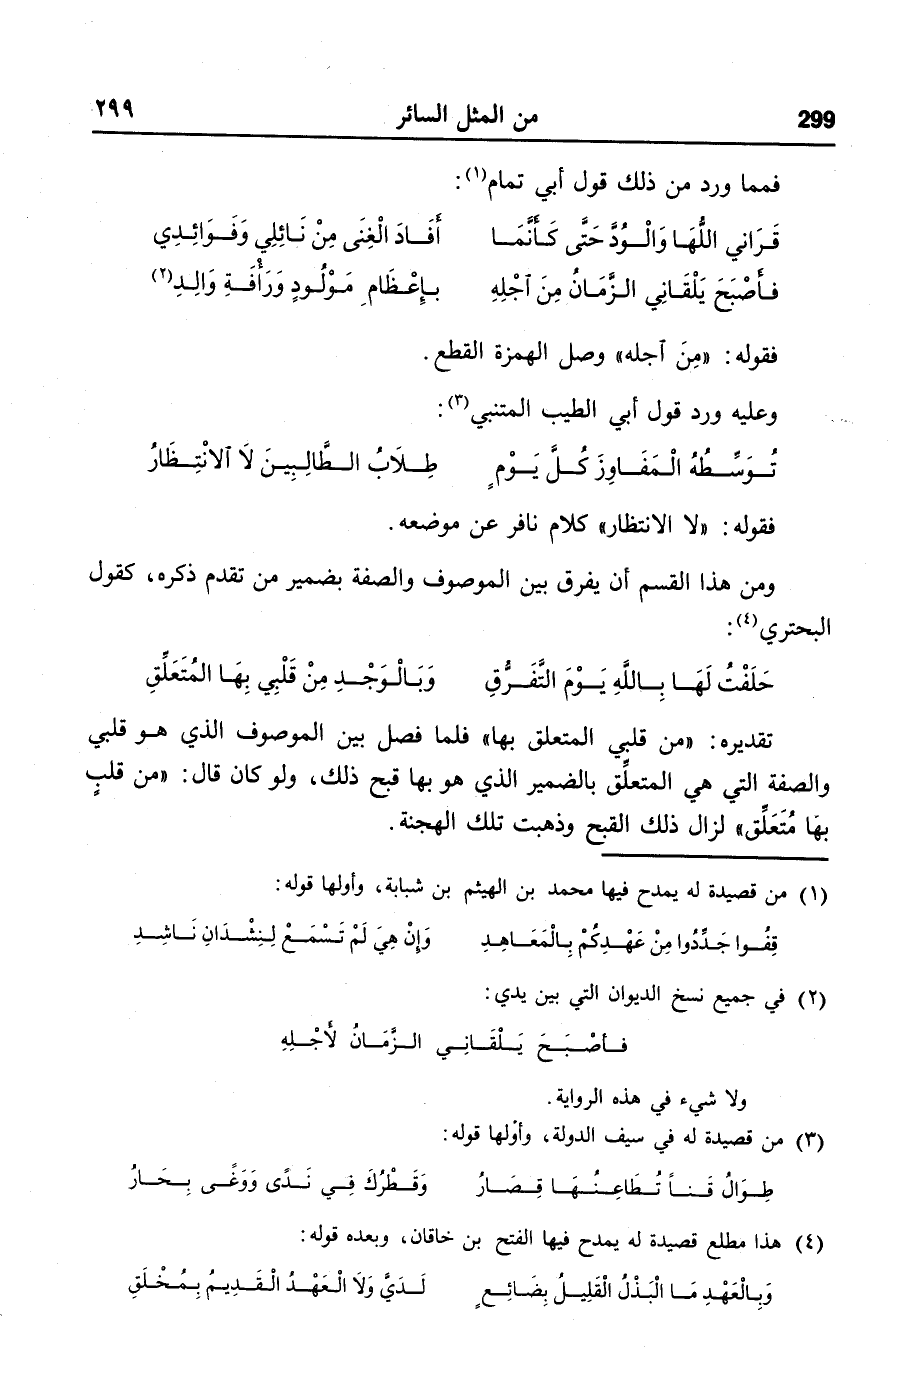 299 من المثل السائر ٢٩٩
فمما ورد من ذلك قول أبي تمام(١):
قَرَاني اللُّهَا وَالْوُدَّ حَتَّى كَأَنَّمَا أَفَادَ الْغِنَى مِنْ نَائِلِي وَفَوَائِدِي
فأَصْبَحَ يَلْقَانِي الزَّمَانُ مِنَ آجْلِهِ بإِعْظَامِ مَوْلُودٍ وَرَأْفَةِ وَالِدِ(٢)
فقوله: «مِنَ آجله» وصل الهمزة القطع.
وعليه ورد قول أبي الطيب المتنبي(٣):
تُوَسِّطُهُ الْمَفَاوِزَ كُلَّ يَوْمٍ طِلَابُ الطَّالِبِينَ لَا آلانْتِظَارُ
فقوله: «لا الانتظار» كلام نافر عن موضعه.
ومن هذا القسم أن يفرق بين الموصوف والصفة بضمير من تقدم ذكره، كقول
البحتري(٤):
حَلَفْتُ لَهَا بِاللَّهِ يَوْمَ التَّفَرُّقِ وَبَالْوَجْدِ مِنْ قَلْبِي بِهَا المُتَعَلِّقِ
تقديره: «من قلبي المتعلق بها» فلما فصل بين الموصوف الذي هو قلبي
والصفة التي هي المتعلِّق بالضمير الذي هو بها قبح ذلك، ولو كان قال: «من قلبٍ
بهَا مُتَعَلِّق» لزال ذلك القبح وذهبت تلك الهجنة.
(١) من قصيدة له يمدح فيها محمد بن الهيثم بن شبابة، وأولها قوله:
قِفُوا جَدِّدُوا مِنْ عَهْدِكُمْ بِالْمَعَاهِدِ وَإِنْ هِيَ لَمْ تَسْمَعْ لِنِشْدَانِ نَاشِدِ
(٢) في جميع نسخ الديوان التي بين يدي:
فأصْبَحَ يَلْقَانِي الزَّمَانُ لأَجْلِهِ
ولا شيء في هذه الرواية.
(٣) من قصيدة له في سيف الدولة، وأوّلها قوله:
طِوَالُ قَناً تُطَاعِنُهَا قِصَارُ وَقَطْرُكَ فِي نَدًى وَوَغًى بِحَارُ
(٤) هذا مطلع قصيدة له يمدح فيها الفتح بن خاقان، وبعده قوله:
وَبِالْعَهْدِ مَا الْبَذْلُ الْقَلِيلُ بِضَائِعٍ لَدَيَّ وَلَا الْعَهْدُ الْقَدِيمُ بِمُخْلَقِ